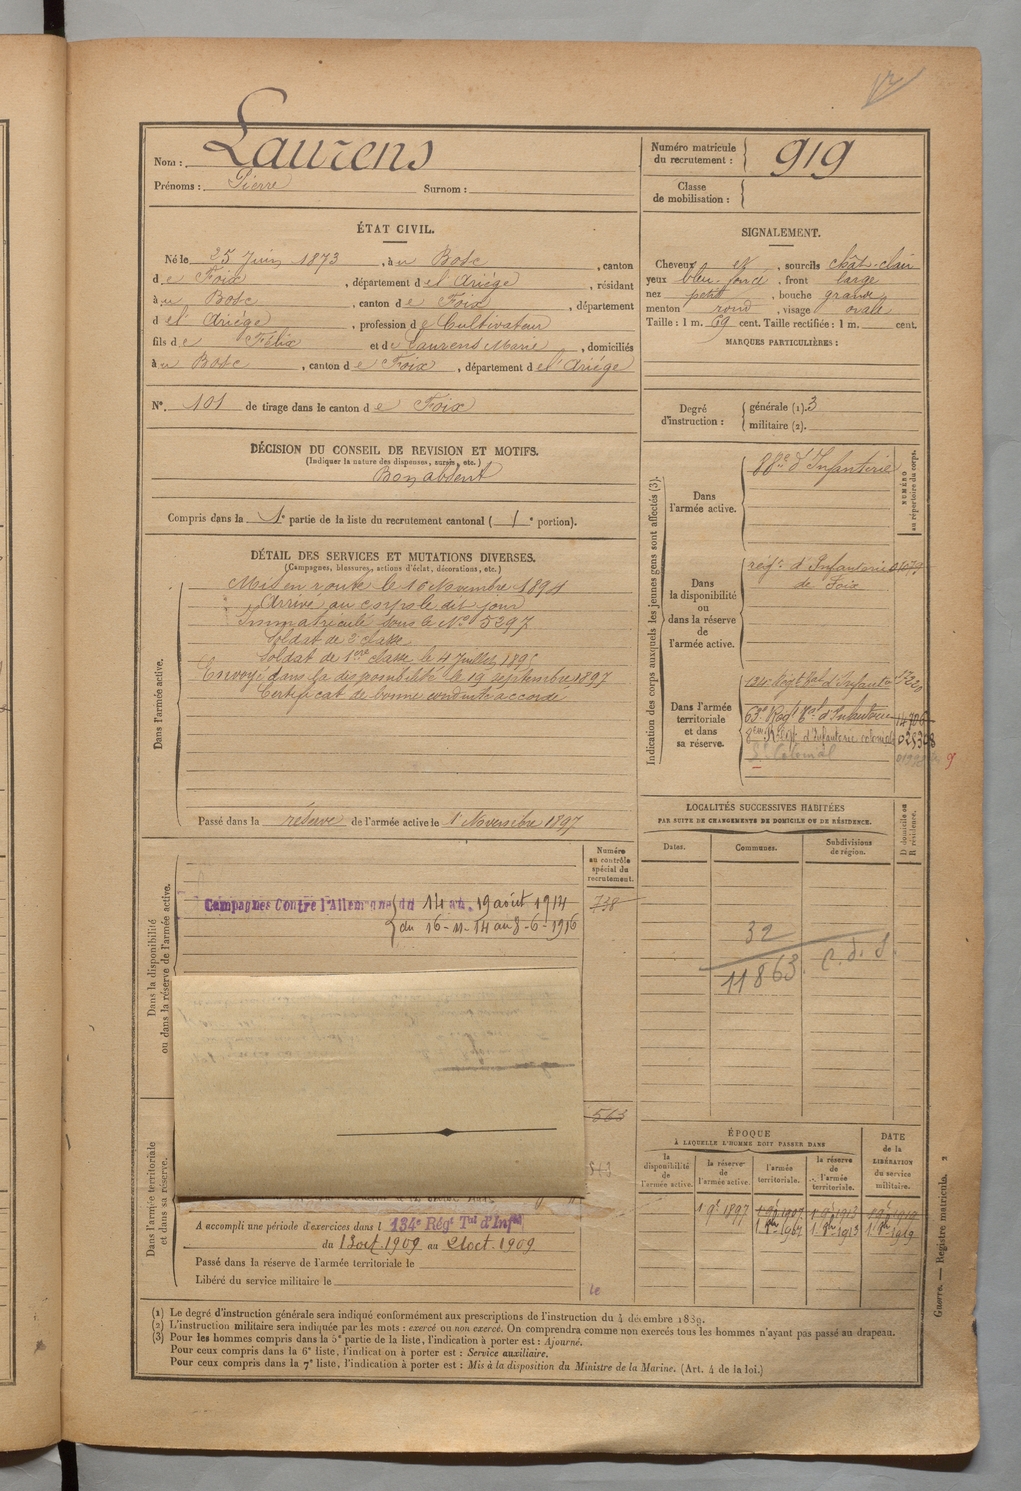 Nom : Laurens
Prénoms : Pierre Surnom :
Numéro matricule du recrutement : 919
Classe de mobilisation :
ÉTAT CIVIL.
Né le 25 Juin 1873, à u Bosc, canton
d e Foix, département d e l'Ariége, résidant
à u Bosc, canton d e Foix, département
d e l'Ariége, profession d e Cultivateur
fils d e Félix et d e Laurens Marie, domiciliés
à u Bosc, canton d e Foix, département d e l'Ariége
N°. 101 de tirage dans le canton d e Foix
SIGNALEMENT.
Cheveux et, sourcils chât-clair
yeux bleu-foncé, front large
nez petit, bouche grande
menton rond, visage ovale
Taille : 1 m. 69 cent. Taille rectifiée : 1 m. cent.
MARQUES PARTICULIÈRES :
Degré d'instruction : générale (1). 3
militaire (2).
DÉCISION DU CONSEIL DE REVISION ET MOTIFS.
(Indiquer la nature des dispenses, sursis, etc.)
Bon absent
Compris dans la 1e partie de la liste du recrutement cantonal ( 1e portion).
DÉTAIL DES SERVICES ET MUTATIONS DIVERSES.
(Campagnes, blessures, actions d'éclat, décorations, etc.)
Dans l'armée active.
Mis en route le 16 Novembre 1894
Arrivé au corps le dit jour
Immatriculé sous le No 5297
Soldat de 2e classe
Soldat de 1ère classe le 4 Juillet 189
Envoyé dans la disponibilité le 19 septembre 1897
Certificat de bonne conduite accordé
Passé dans la réserve de l'armée active le 1er Novembre 1897
Indication des corps auxquels les jeunes gens sont affectés (3).
NUMÉRO au répertoire du corps.
Dans l'armée active.
88e d'Infanterie
Dans la disponibilité ou dans la réserve de l'armée active.
régt d'Infanterie
de Foix
Dans l'armée territoriale et dans sa réserve.
134e Régt tal d'Infanterie
63e Régt tal d'Infanterie 14706
8em Régt d'Infanterie coloniale 025308
Colonial
LOCALITÉS SUCCESSIVES HABITÉES
PAR SUITE DE CHANGEMENTS DE DOMICILE OU DE RÉSIDENCE.
Dates. Communes. Subdivisions de région. D domicile ou R résidence.
32
11863 C. d. S
Dans la disponibilité ou dans la réserve de l'armée active.
Numéro au contrôle spécial du recrutement.
738
Campagnes Contre l'Allemagne du 14 au 19 août 1914
du 16-11-14 au 8-6-1916
563
Dans l'armée territoriale et dans sa réserve.
A accompli une période d'exercices dans l 134e Régt Tal d'Infie
du 13 oct 1909 au 21 oct. 1909
Passé dans la réserve de l'armée territoriale le
Libéré du service militaire le
ÉPOQUE
À LAQUELLE L'HOMME DOIT PASSER DANS
la disponibilité de l'armée active.
la réserve de l'armée active.
l'armée territoriale.
la réserve de l'armée territoriale.
DATE de la LIBÉRATION du service militaire.
1 9e 1897 1 9e 1907 1 9e 1913 1 9e 1919
(1) Le degré d'instruction générale sera indiqué conformément aux prescriptions de l'instruction du 4 décembre 1889.
(2) L'instruction militaire sera indiquée par les mots : exercé ou non exercé. On comprendra comme non exercés tous les hommes n'ayant pas passé au drapeau.
(3) Pour les hommes compris dans la 5e partie de la liste, l'indication à porter est : Ajourné.
Pour ceux compris dans la 6e liste, l'indication à porter est : Service auxiliaire.
Pour ceux compris dans la 7e liste, l'indication à porter est : Mis à la disposition du Ministre de la Marine. (Art. 4 de la loi.)
Guerre. — Registre matricule. 2